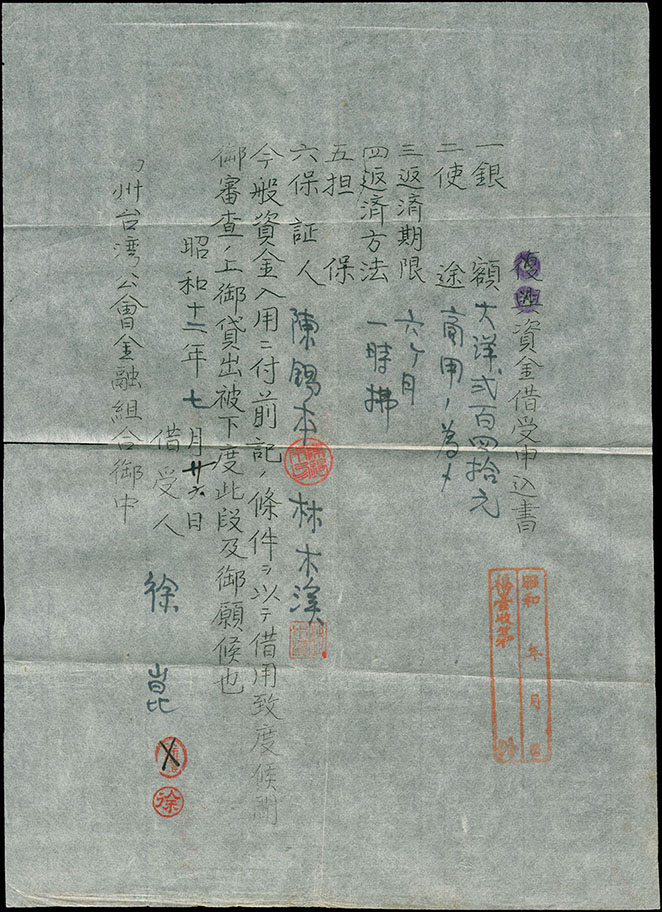 復興資金借受申込書
一銀額 大洋弍百四拾元
二使途 商用ノ為メ
三返済期限 六ヶ月
四返済方法 一時拂
五担保
六保証人 陳錫本 林木渓
今般資金入用ニ付前記ノ條件ヲ以テ借用致度候間
御審査ノ上御貸出被下度此段及御願候也
昭和十二年七月廿六日
借受人 徐崑
州台湾公會金融組合御中
徐
昭和 年 月